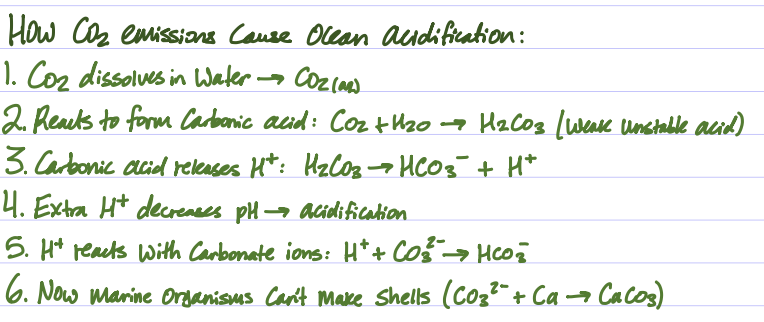 How CO₂ emissions cause Ocean acidification:
1. CO₂ dissolves in water → CO₂(aq)
2. Reacts to form Carbonic acid: CO₂ + H₂O → H₂CO₃ (weak unstable acid)
3. Carbonic acid releases H⁺: H₂CO₃ → HCO₃⁻ + H⁺
4. Extra H⁺ decreases pH → acidification
5. H⁺ reacts with Carbonate ions: H⁺ + CO₃²⁻ → HCO₃⁻
6. Now Marine Organisms Can't Make Shells (CO₃²⁻ + Ca → CaCO₃)